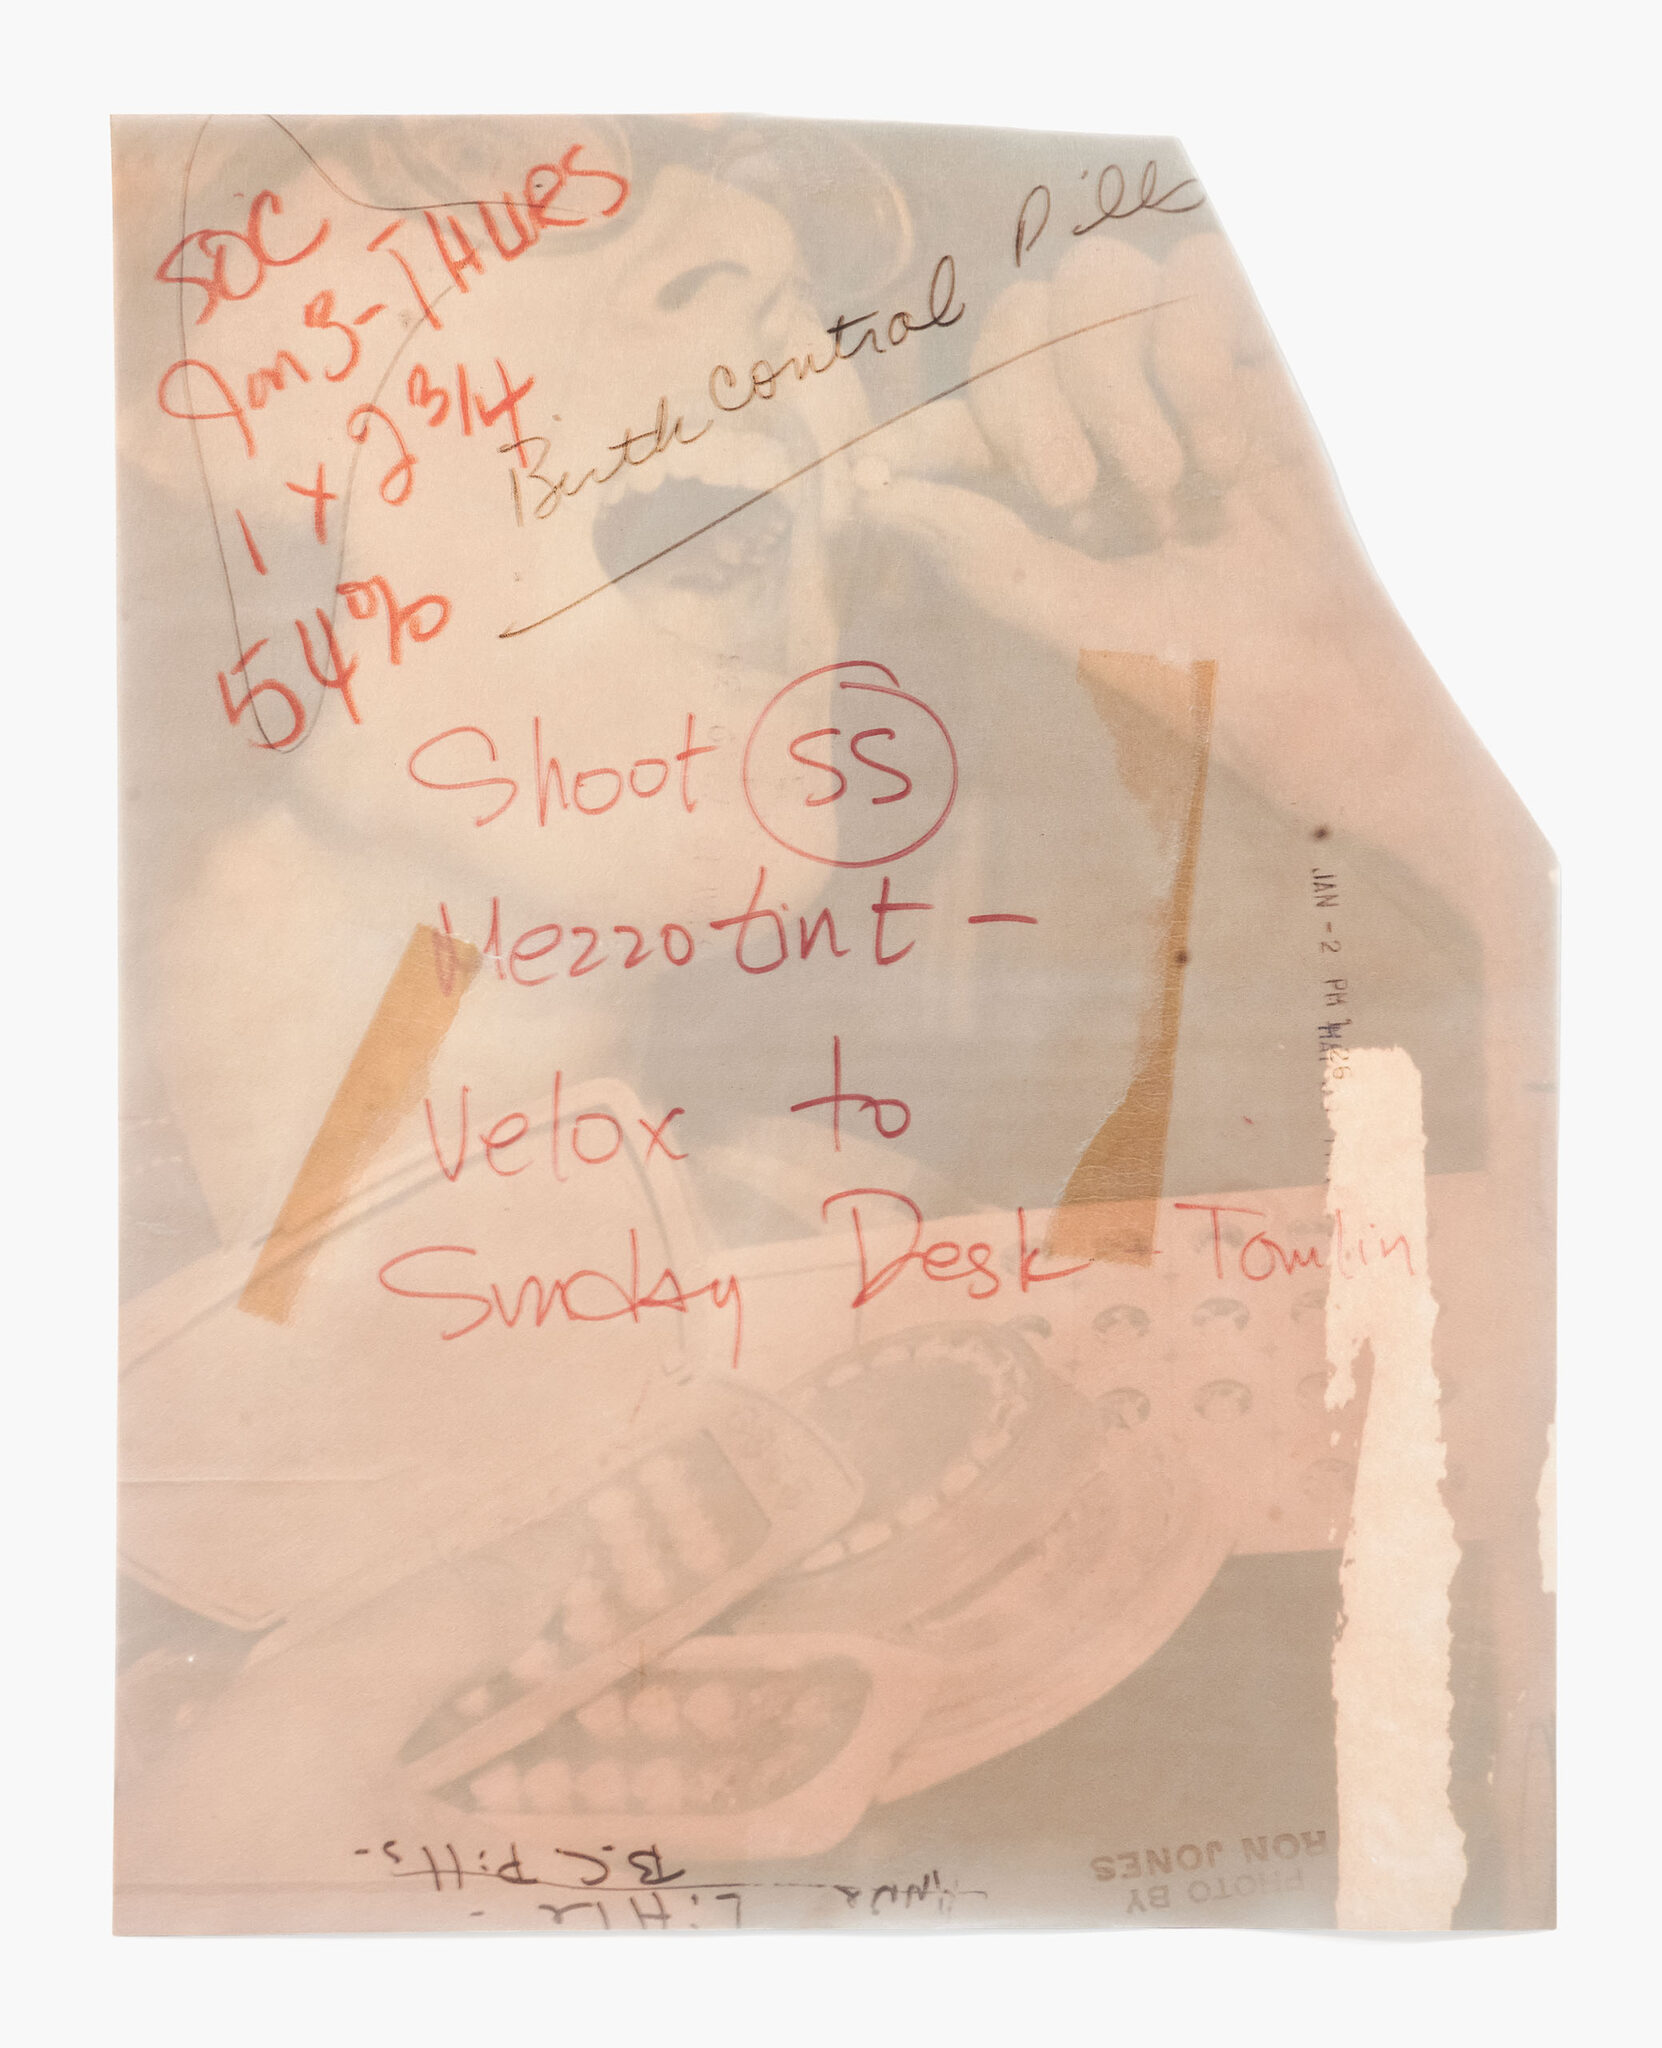 SDC
Jan 3 - THURS
1 x 2 3/4
54%
Birth control Pills
Shoot SS
Mezzotint -
Velox to
Sunday Desk - Tomlin
JAN - 2 PM
26
B.C Pills -
Little -
PHOTO BY
RON JONES